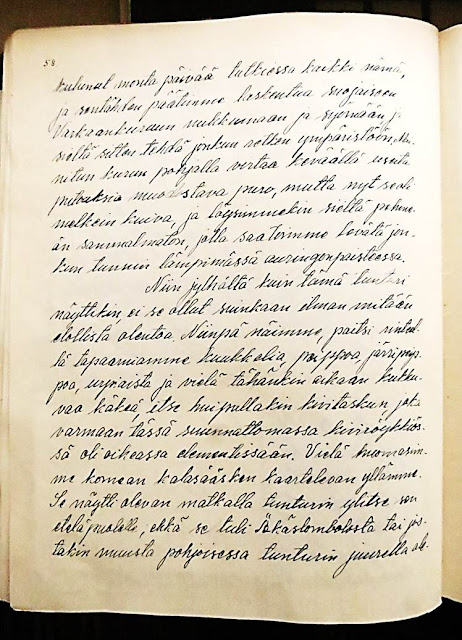 58
kulunut monta päivää tutkiessa kaikki nämä,
ja sentähden päätimme laskeutua suojaiseen
Varkaankuruun nukkumaan ja syömään ja
sieltä sitten tehdä jonkun retken ympäristöön.
nitun kurun pohjalla virtaa keväällä useita
putouksia muodostava puro, mutta nyt se oli
melkein kuiva, ja löysimmekin sieltä pehme-
än sammalmaton, jolla saatoimme levätä jon-
kun tunnin lämpimässä auringonpaisteessa.
Niin jylhältä kuin tämä tunturi
näyttikin, ei se ollut suinkaan ilman mitään
elollista olentoa. Niinpä näimme, paitsi rinteel-
lä tapaamiamme kuukkelia, peippoa, järripeip-
poa, urpiaista ja vielä tähänkin aikaan kukku-
vaa käkeä, itse huipullakin kivitaskun, joka
varmaan tässä suunnattomassa kiviröykkiös-
sä oli oikeassa elementissään. Vielä huomasim-
me komean kalasääsken kaartelevan yllämme.
Se näytti olevan matkalla tunturin ylitse sen
eteläpuolelle, ehkä se tuli Äkäslombolosta tai jos-
takin muusta pohjoisessa tunturin juurella ole-